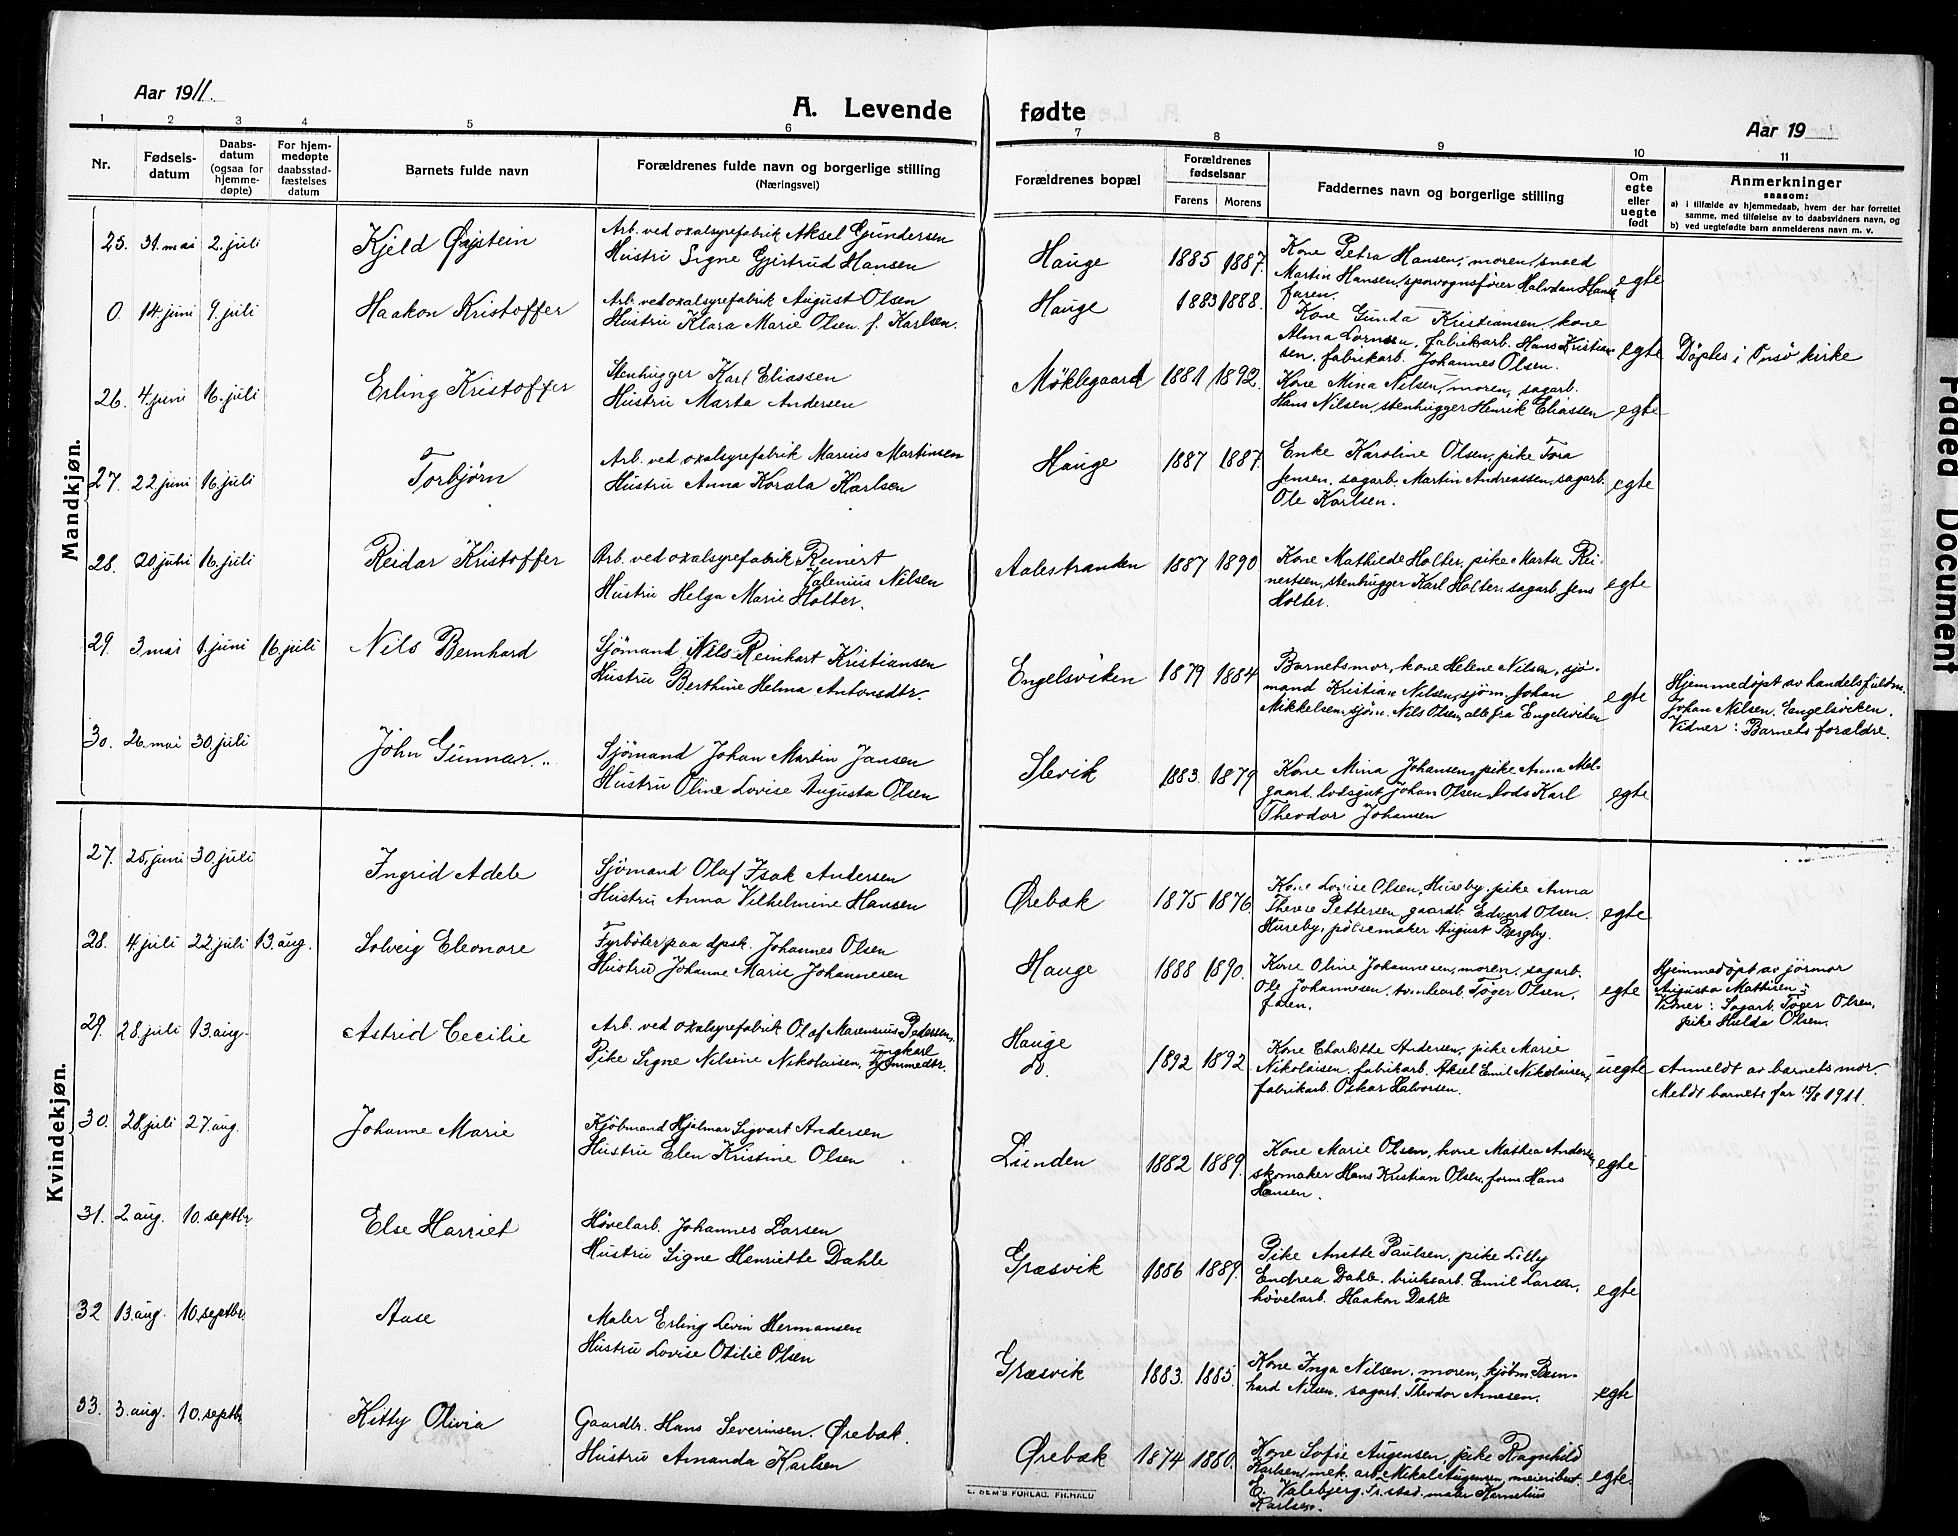 Aar 1911.
A. Levende fødte
Aar 19
1 2 3 4 5 6 7 8 9 10 11
Nr.
Fødsels-
datum
Daabs-
datum
(ogsaa for
hjemme-
døpte)
For hjem-
medøpte
daabsstad-
fæstelses
datum
Barnets fulde navn
Forældrenes fulde navn og borgerlige stilling
(Næringsvei)
Forældrenes bopæl
Forældrenes
fødselsaar
Farens Morens
Faddernes navn og borgerlige stilling
Om
egte
eller
uegte
født
Anmerkninger
saasom:
a) i tilfælde av hjemmedaab, hvem der har forrettet
samme, med tilføielse av to daabsvidners navn, og
b) ved uegtefødte barn anmelderens navn m. v.
Mandkjøn.
25. 31. mai 2. juli
Kjeld Øistein
Arb. ved oxalsyrefabrik Aksel Gundersen
Hustru Signe Gjertrud Hansen
Hauge 1885 1887.
Kone Petra Hansen, moren, smed
Martin Hansen, sporvognsfører Halvdan Hans
faren.
egte
0. 14. juni 9. juli
Haakon Kristoffer
Arb. ved oxalsyrefabrik August Olsen
Hustru Klara Marie Olsen f. Karlsen.
Hauge 1883 1888.
Kone Gunda Kristiansen, kone
Alma Lornsen, fabrikarb. Hans Kristian
sen, fabrikarb. Johannes Olsen.
egte
Døptes i Onsø kirke
26. 4. juni 16. juli
Erling Kristoffer
Stenhugger Karl Eliassen
Hustru Marta Andersen
Møklegaard 1881 1892.
Kone Mina Nilsen, moren, sagarb.
Hans Nilsen, stenhugger Henrik Eliassen
egte
27. 22. juni 16. juli
Torbjørn
Arb. ved oxalsyrefabrik Marius Martinsen
Hustru Anna Korala Karlsen
Hauge 1887 1887.
Enke Karoline Olsen, pike Tora
Jensen, sagarb. Martin Andreassen, sagarb.
Ole Karlsen.
egte
28. 20. juni 16. juli
Reidar Kristoffer
Arb. ved oxalsyrefabrik Reinert
Valenius Nilsen
Hustru Helga Marie Holter.
Aalestranden 1887 1890
Kone Mathilde Holter, pike Marta Rei-
nertsen, stenhugger Karl Holter, sagarb. Jens
Holter.
egte
29. 3. mai 1. juni 16. juli
Nils Bernhard
Sjømand Nils Reinhart Kristiansen
Hustru Berthine Helma Antonsdtr.
Engelsviken 1879 1884
Barnets mor, kone Helene Nilsen, sjø-
mand Kristian Nilsen, sjøm. Johan
Mikkelsen, sjøm. Nils Olsen, alle fra Engelsviken
egte
Hjemmedøpt av handelsfuldm.
Johan Nilsen, Engelsviken.
Vidner: Barnets forældre.
30. 26. mai 30. juli
John Gunnar.
Sjømand Johan Martin Jansen
Hustru Oline Lovise Augusta Olsen
Slevik 1883. 1879
Kone Mina Johansen, pike Anna Mel-
gaard, lodsgut Johan Olsen, lods Karl
Theodor Johansen
egte
Kvindekjøn.
27. 25. juni 30. juli
Ingrid Adele
Sjømand Olaf Isak Andersen
Hustru Anna Vilhelmine Hansen
Ørebæk 1875 1876.
Kone Lovise Olsen, Huseby, pike Anna
Therese Pettersen, gaardb. Edvard Olsen.
Huseby, pølsemaker August Bergby.
egte
28. 4. juli 22. juli 13. aug.
Solveig Eleonore
Fyrbøter paa dpsk. Johannes Olsen
Hustru Johanne Marie Johannesen
Hauge 1888 1890.
Kone Oline Johannesen, moren, sagarb.
Ole Johannesen, Tøger Olsen,
faren.
egte
Hjemmedøpt av jormor
Augusta Mathisen
Vidner: Sagarb. Tøger Olsen,
pike Hulda Olsen.
29. 28. juli 13. aug.
Astrid Cecilie
Arb. ved oxalsyrefabrik Olaf Marensius Pedersen,
ungkarl
Pike Signe Nilsine Nikolaisen, hjemmedtr.
Hauge
do. 1892 1892
Kone Charlotte Andersen, pike Marie
Nikolaisen, fabrikarb. Aksel Emil Nikolaisen,
fabrikarb. Oskar Halvorsen.
uegte
Anmeldt av barnets mor
Meldt barnets far 15/8 1911.
30. 28. juli 27. aug.
Johanne Marie
Kjøbmand Hjalmar Sigvart Andersen
Hustru Elen Kristine Olsen
Lunden 1882 1889.
Kone Marie Olsen, kone Mathea Andersen,
skomaker Hans Kristian Olsen, form. Hans
Hansen.
egte
31. 2. aug. 10. septbr.
Else Harriet
Høvelarb. Johannes Larsen
Hustru Signe Henriette Dahle
Græsvik 1886 1889.
Pike Anette Paulsen, pike Lilly
Endrea Dahle, bruksarb. Emil Larsen,
høvelarb. Haakon Dahle
egte
32 13. aug. 10. septbr.
Aase
Maler Erling Levin Hermansen
Hustru Lovise Otilie Olsen
Græsvik 1883. 1885.
Kone Inga Nilsen, moren, kjøbm. Bern-
hard Nilsen, sagarb. Theodor Arnesen.
egte
33. 3. aug. 10. septbr
Kitty Olivia
Gaardbr. Hans Severinsen, Ørebæk.
Hustru Amanda Karlsen
Ørebæk 1874 1880.
Kone Sofie Augensen, pike Ragnhild
Karlsen, mek. arb. Mikal Augensen, meieribest.
E. Valebjerg, Fr.stad. maler Kornelius
Karlsen.
egte.
E. SEM'S FORLAG, FR.HALD
Paded Document